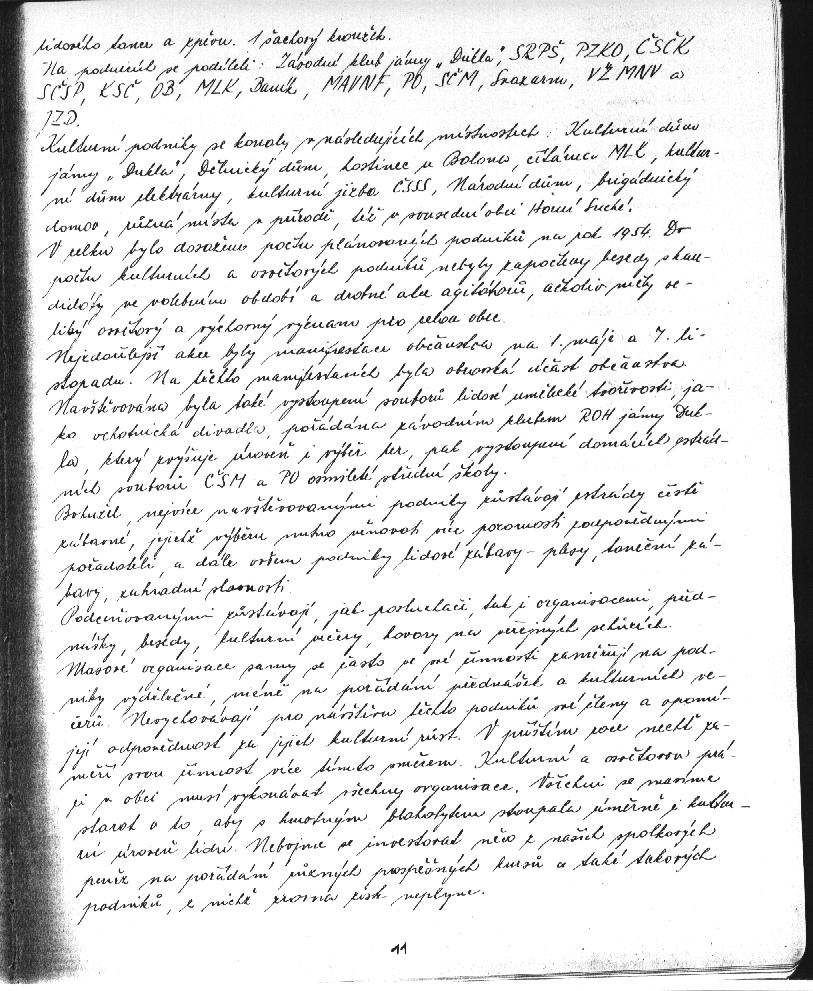 lidového tance a zpěvu. 1 šachový kroužek.
Na podnicích se podíleli: Závodní klub jámy „Dukla", SRPŠ, PZKO, ČSČK
SČSP, KSČ, OB, MLK, Baník, MAVNF, PO, SČM, Svazarm, VŽ MNV a
JZD.
Kulturní podniky se konaly v následujících místnostech: Kulturní dům
jámy „Dukla", Dělnický dům, hostinec u Bolona, čítárna MLK, kultur-
ní dům elektrárny, kulturní jizba ČSSS, Národní dům, brigádnický
domov, různá místa v přírodě, též v sousední obci Horní Suché.
V celku bylo dosaženo počtu plánovaných podniků na rok 1954. Do
počtu kulturních a osvětových podniků nebyly započteny besedy s kan-
didáty ve volebním období a drobné akce agitátorů, ačkoliv měly ve-
liký osvětový a výchovný význam pro celou obec.
Nejzdařilejší akce byly manifestace občanstva na 1. máje a 7. li-
stopadu. Na těchto manifestacích byla obrovská účast občanstva
Navštěvována byla také vystoupení souborů lidové umělecké tvořivosti, ja-
ko ochotnická divadla, pořádána závodním klubem ROH jámy Duk-
la, který zvyšuje úroveň i výběr her, pak vystoupení domácích estrád-
ních souborů ČSM a PO osmileté střední školy.
Bohužel, nejvíce navštěvovanými podniky zůstávají estrády čistě
zábavné, jejichž výběru nutno věnovati více pozornosti zodpovědnými
pořadateli, a dále ovšem podniky lidové zábavy - plesy, taneční zá-
bavy, zahradní slavnosti.
Podceňovanými zůstávají, jak posluchači, tak i organisacemi, před-
nášky, besedy, kulturní večery, hovory na veřejných schůzích.
Masové organisace samy se často ve své činnosti zaměřují na pod-
niky výdělečné, méně na pořádání přednášek a kulturních ve-
čerů. Nevychovávají pro návštěvu těchto podniků své členy a opomí-
její odpovědnost za jejich kulturní růst. V příštím roce nechť za-
měří svou činnost více tímto směrem. Kulturní a osvětovou prá-
ci v obci musí vykonávat všechny organisace. Všichni se musíme
starat o to, aby s hmotným blahobytem stoupala úměrně i kultur-
ní úroveň lidu. Nebojme se investovat něco z našich spolkových
peněz na pořádání různých prospěšných kursů a také takových
podniků, z nichž zrovna zisk neplyne.
11